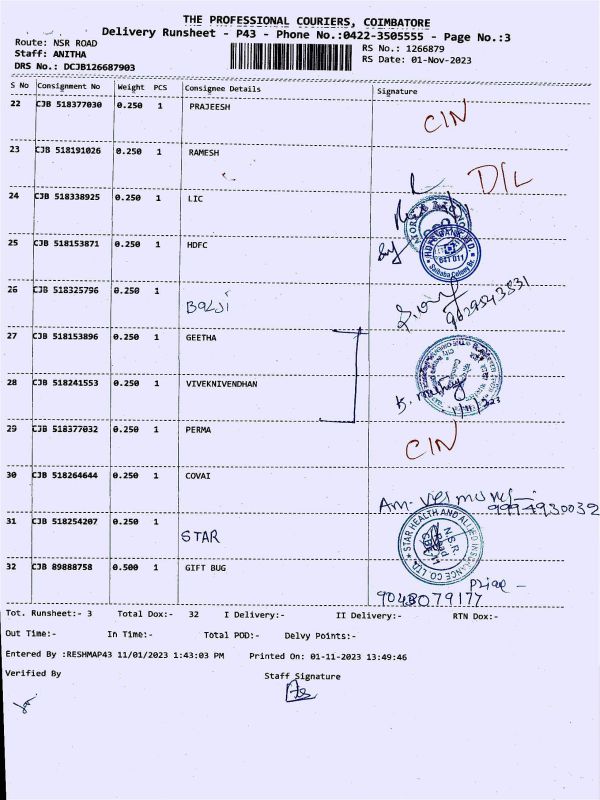 THE PROFESSIONAL COURIERS, COIMBATORE
Delivery Runsheet - P43 - Phone No.:0422-3505555 - Page No.:3
Route: NSR ROAD
RS No.: 1266879
Staff: ANITHA
RS Date: 01-Nov-2023
DRS No.: DCJB126687903
S No Consignment No Weight PCS Consignee Details Signature
22 CJB 518377030 0.250 1 PRAJEESH CIN
23 CJB 518191026 0.250 1 RAMESH D/L
24 CJB 518338925 0.250 1 LIC
25 CJB 518153871 0.250 1 HDFC
HDFC BANK LTD.
641 011
Saibaba Colony Br.
26 CJB 518325796 0.250 1 Balji
27 CJB 518153896 0.250 1 GEETHA
28 CJB 518241553 0.250 1 VIVEKNIVENDHAN
29 CJB 518377032 0.250 1 PERMA CIN
30 CJB 518264644 0.250 1 COVAI
9994930032
31 CJB 518254207 0.250 1 STAR
STAR HEALTH AND ALLIED INSURANCE CO. LTD.
N.S.R. Road
32 CJB 89888758 0.500 1 GIFT BUG
9048079177
Tot. Runsheet:- 3 Total Dox:- 32 I Delivery:- II Delivery:- RTN Dox:-
Out Time:- In Time:- Total POD:- Delvy Points:-
Entered By :RESHMAP43 11/01/2023 1:43:03 PM Printed On: 01-11-2023 13:49:46
Verified By Staff Signature